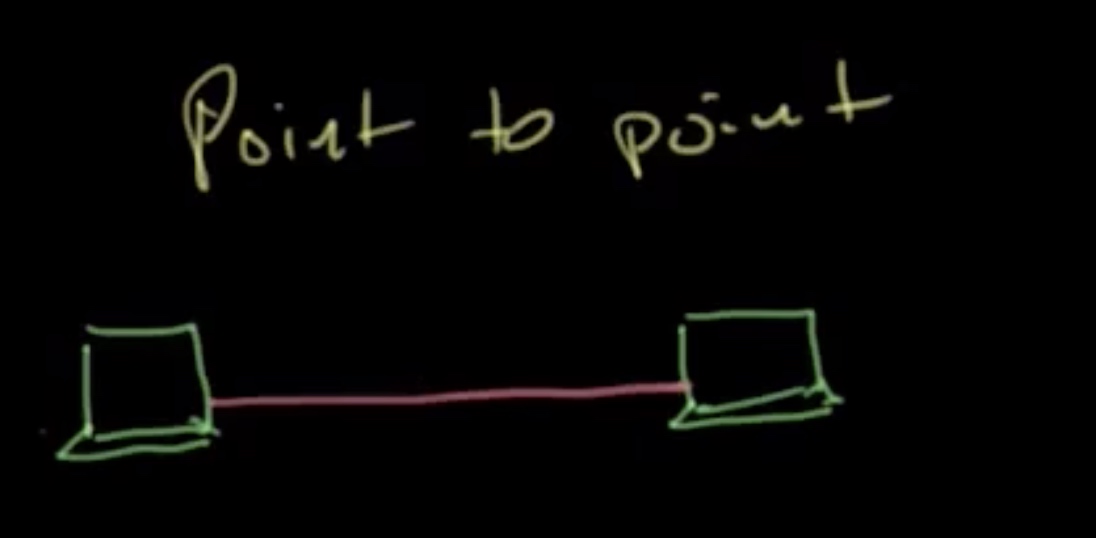 Point to point